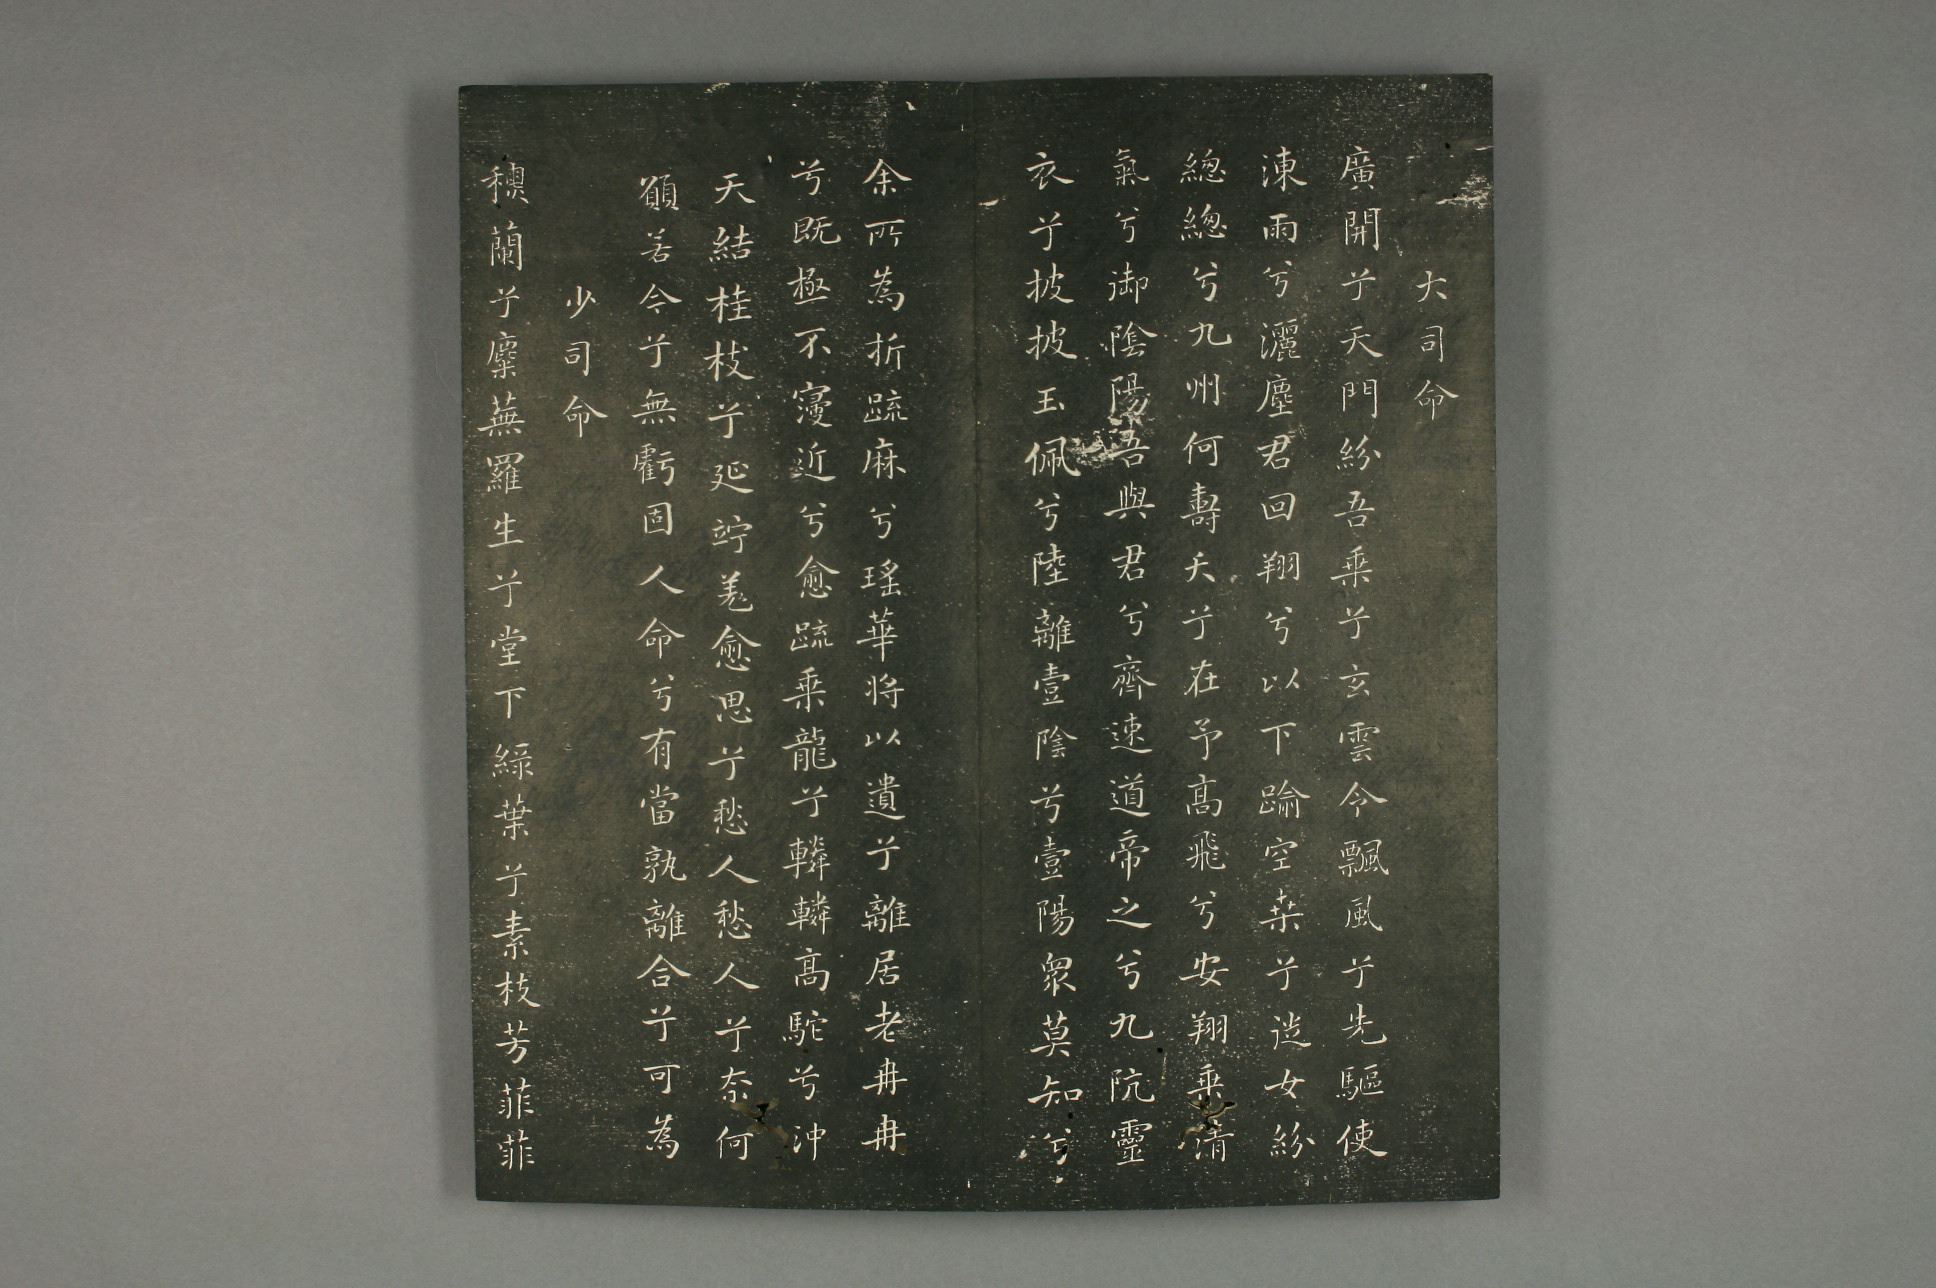 大司命
廣開兮天門紛吾乗兮玄雲令飄風兮先驅使
涷雨兮灑塵君回翔兮以下踰空桒兮從女紛
緫緫兮九州何壽夭兮在予髙飛兮安翔乗清
氣兮御陰陽吾與君兮齊速道帝之兮九阬靈
衣兮披披玉佩兮陸離壹陰兮壹陽衆莫知兮
余所為折疏麻兮瑤華将以遺兮離居老冉冉
兮既極不寖近兮愈疏乗龍兮轔轔髙駝兮沖
天結桂枝兮延竚羌愈思兮愁人愁人兮奈何
願若今兮無虧固人命兮有當孰離合兮可為
少司命
穮蘭兮麋蕪羅生兮堂下緑葉兮素枝芳菲菲